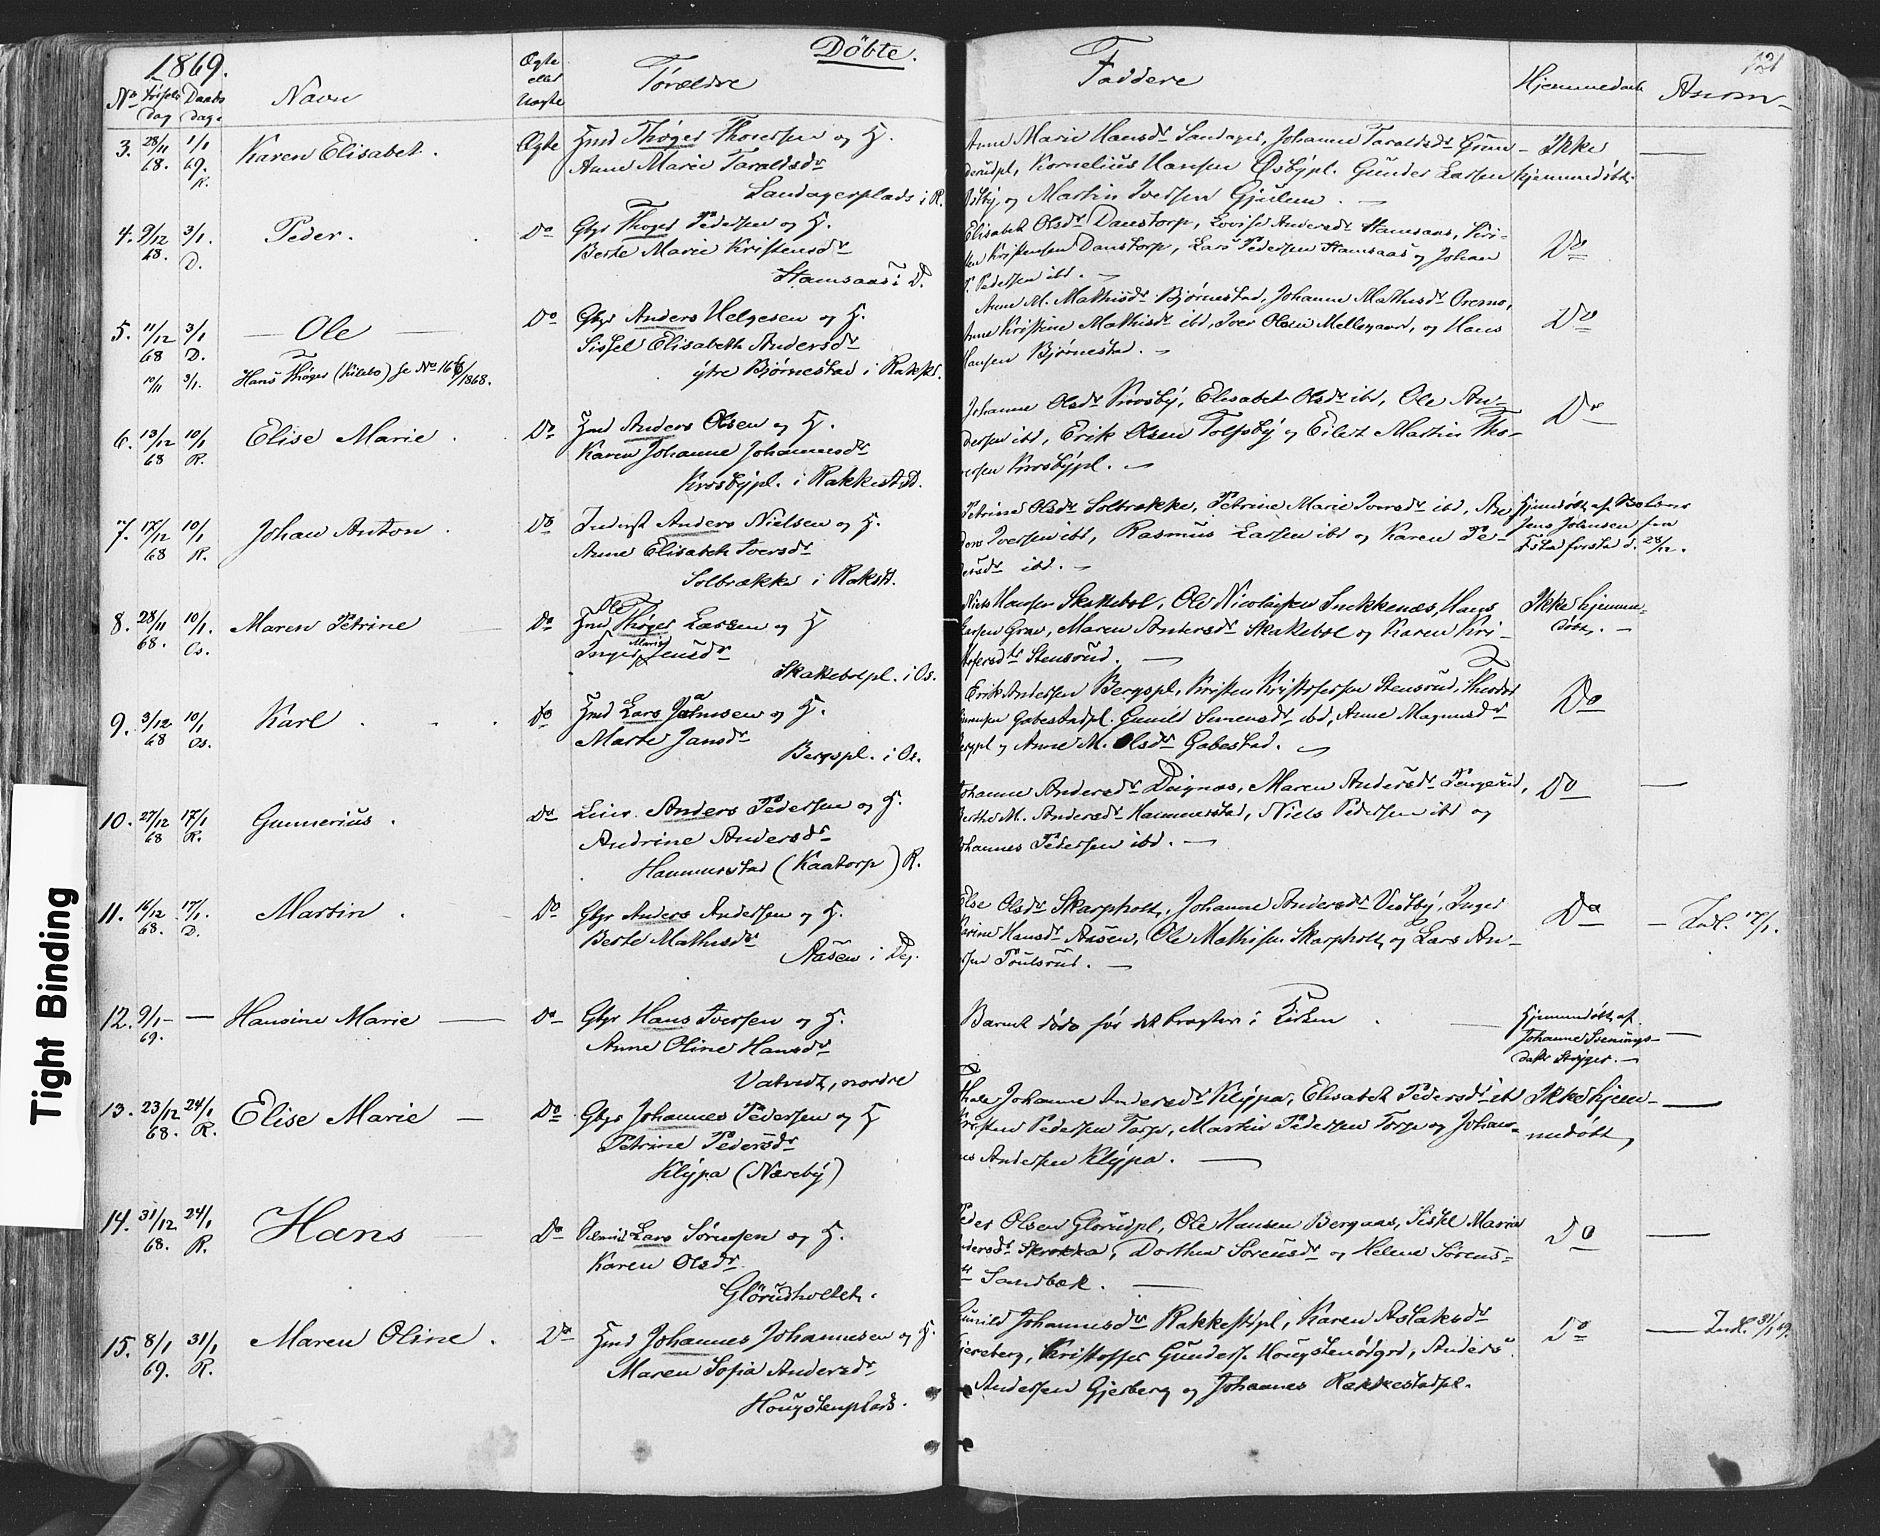 1869.
Døbte.
Faddere
121
No Fødsels Dag
Daabs dag.
Navn
Ægte eller Uægte
Forældre
Hjemmedøbt
Anm-
3. 28/11 68. 1/1 69. R. Karen Elisabet. Ægte Hmd Thøger Thoresen og H.
Anne Marie Taraldsdr
Sandagerplads i R.
Anne Marie Hansdr Sandager, Johanne Taraldsdr Grim-
derudpl, Kornelius Hansen Øsbypl. Gunder Larsen
Østby og Martin Iversen Gjulem. -
Ikke
hjemmedøbt.
4. 9/12 68. 3/1. D. Peder. Do Gbr Thoger Pedersen og H.
Berte Marie Kristensdr
Stamsaas i D.
Elisabet Olsdr Danstorp, Lovise Andersdr Stamsaas, Kri-
sten Kristensen Danstorp, Lars Pedersen Stamsaas og Johan
P. Pedersen ibd. -
Do
5. 11/12 68 3/1 D. - Ole - Do Gbr Anders Helgesen og H.
Sissel Elisabeth Andersdr
ytre Bjørnestad i Rakkst.
Anne M. Mathisdr Bjørnestad, Johanne Mathisdr Oremo,
Anne Kristine Mathisdr ibd, Iver Olsen Mellegaard, og Hans
Hansen Bjørnestad. -
Do
10/11 3/1. Hans Thøger (Kilebo) se No 166/1868.
6. 13/12 68 10/1 R. Elise Marie. Do Hmd Anders Olsen og H.
Karen Johanne Johannesdr
Krosbypl. i Rakkestd.
Johanne Olsdr Krosby, Elisabet Olsdr ibd, Ole An-
dersen ibd, Erik Olsen Tolfsby og Eilert Martin Tho-
resen Krosbypl. -
Do
7. 17/12 68 10/1 R. Johan Anton. Do Inderst Anders Nielsen og H.
Anne Elisabeth Iversdr
Solbrække i Rakst.
Petrine Olsdr Solbrække, Petrine Marie Iversdr ibd, An-
ders Iversen ibt, Rasmus Larsen ibd og Karen Pe-
dersdr ibd. -
Hjemmedøbt af
Jens Johnsen fra
28/12.
8. 28/11 68. 10/1. Os. Maren Petrine Do Hmd Ole Thøger Larsen og H
Inger Marie Jensdr
Skakebolpl. i Os.
Niels Hansen Skakebol, Ole Nicolaisen Snekkenæs, Hans
Larsen Grav, Maren Andersdr Skakebol og Karen Kri-
stofersdtr Stensrud. -
Ikke hjemme-
døbt. -
9. 3/12 68 10/1 Os. Karl. Do Hmd Lars Jansen og H.
Marte Jansdr
Bergspl. i Os.
Erik Andersen Bergspl, Kristen Kristofersen Stensrud, Theodor
Simensen Gabestadpl. Gunild Simensdr ibd, Anne Magnusdr
Bergpl og Anne M. Olsdr Gabestad. -
Do
10. 27/12 68 17/1 R. Gunnerius. Do Anders Pedersen og H.
Andrine Andersdr
Hammerstad (Kaatorp) R.
Johanne Andersdr Degnæs, Maren Andersdr Tengesrud,
Berthe M. Andersdr Hammerstad, Niels Pedersen ibd og
Johannes Pedersen ibd. -
Do -
11. 16/12 68. 17/1. D. Martin. Do Gbr Anders Andersen og H.
Berte Mathisdr
Aasen i Dg.
Else Olsdr Skarpholt, Johanne Andersdr Vestby, Inger
Karine Hansdr Aasen, Ole Mathisen Skarpholt og Lars An-
dersen Poulsrud. -
Do
- Indl. 17/1.
12. 9/1- 69. - Hansine Marie - Do Gbr Hans Iversen og H.
Anne Oline Hansdr
Vatvedt, nordre
Barnet døde før det bragtes i Kirken.
Hjemmedøbt af
Johanne Svenings-
datr Stryger. -
13. 23/12 68. 24/1 R. Elise Marie - Do Gbr Johannes Pedersen og H
Petrine Pedersdr
Klypa (Næreby)
Thale Johanne Andersdr Klypa, Elisabet Pedersdr ibd
Kristen Pedersen Torp, Martin Pedersen Torp og Johan-
nes Andersen Klypa. -
Ikke hjem-
medøbt,
14. 31/12 68. 24/1 R. Hans - Do Lars Sørensen og H.
Karen Olsdr
Glørudholtet.
Peder Olsen Glørudpl, Ole Hansen Bergaas, Sissel Marie
Andersdr Skrokka, Dorthea Sørensdr og Helene Sørens-
dr Sandbæk. -
Do -
15. 8/1 69. 31/1 R. Maren Oline. Do Hmd Johannes Johannesen og H.
Maren Sofia Andersdr
Hougstenplads.
Gunild Johannesdr Rakkestpl, Karen Aslaksdr
Gjereberg, Kristoffer Gunders. Hougstenødgrd, Anders
Andersen Gjerberg og Johannes Rakkestadpl.
Do - Indl. 31/1 69.
Tight Binding